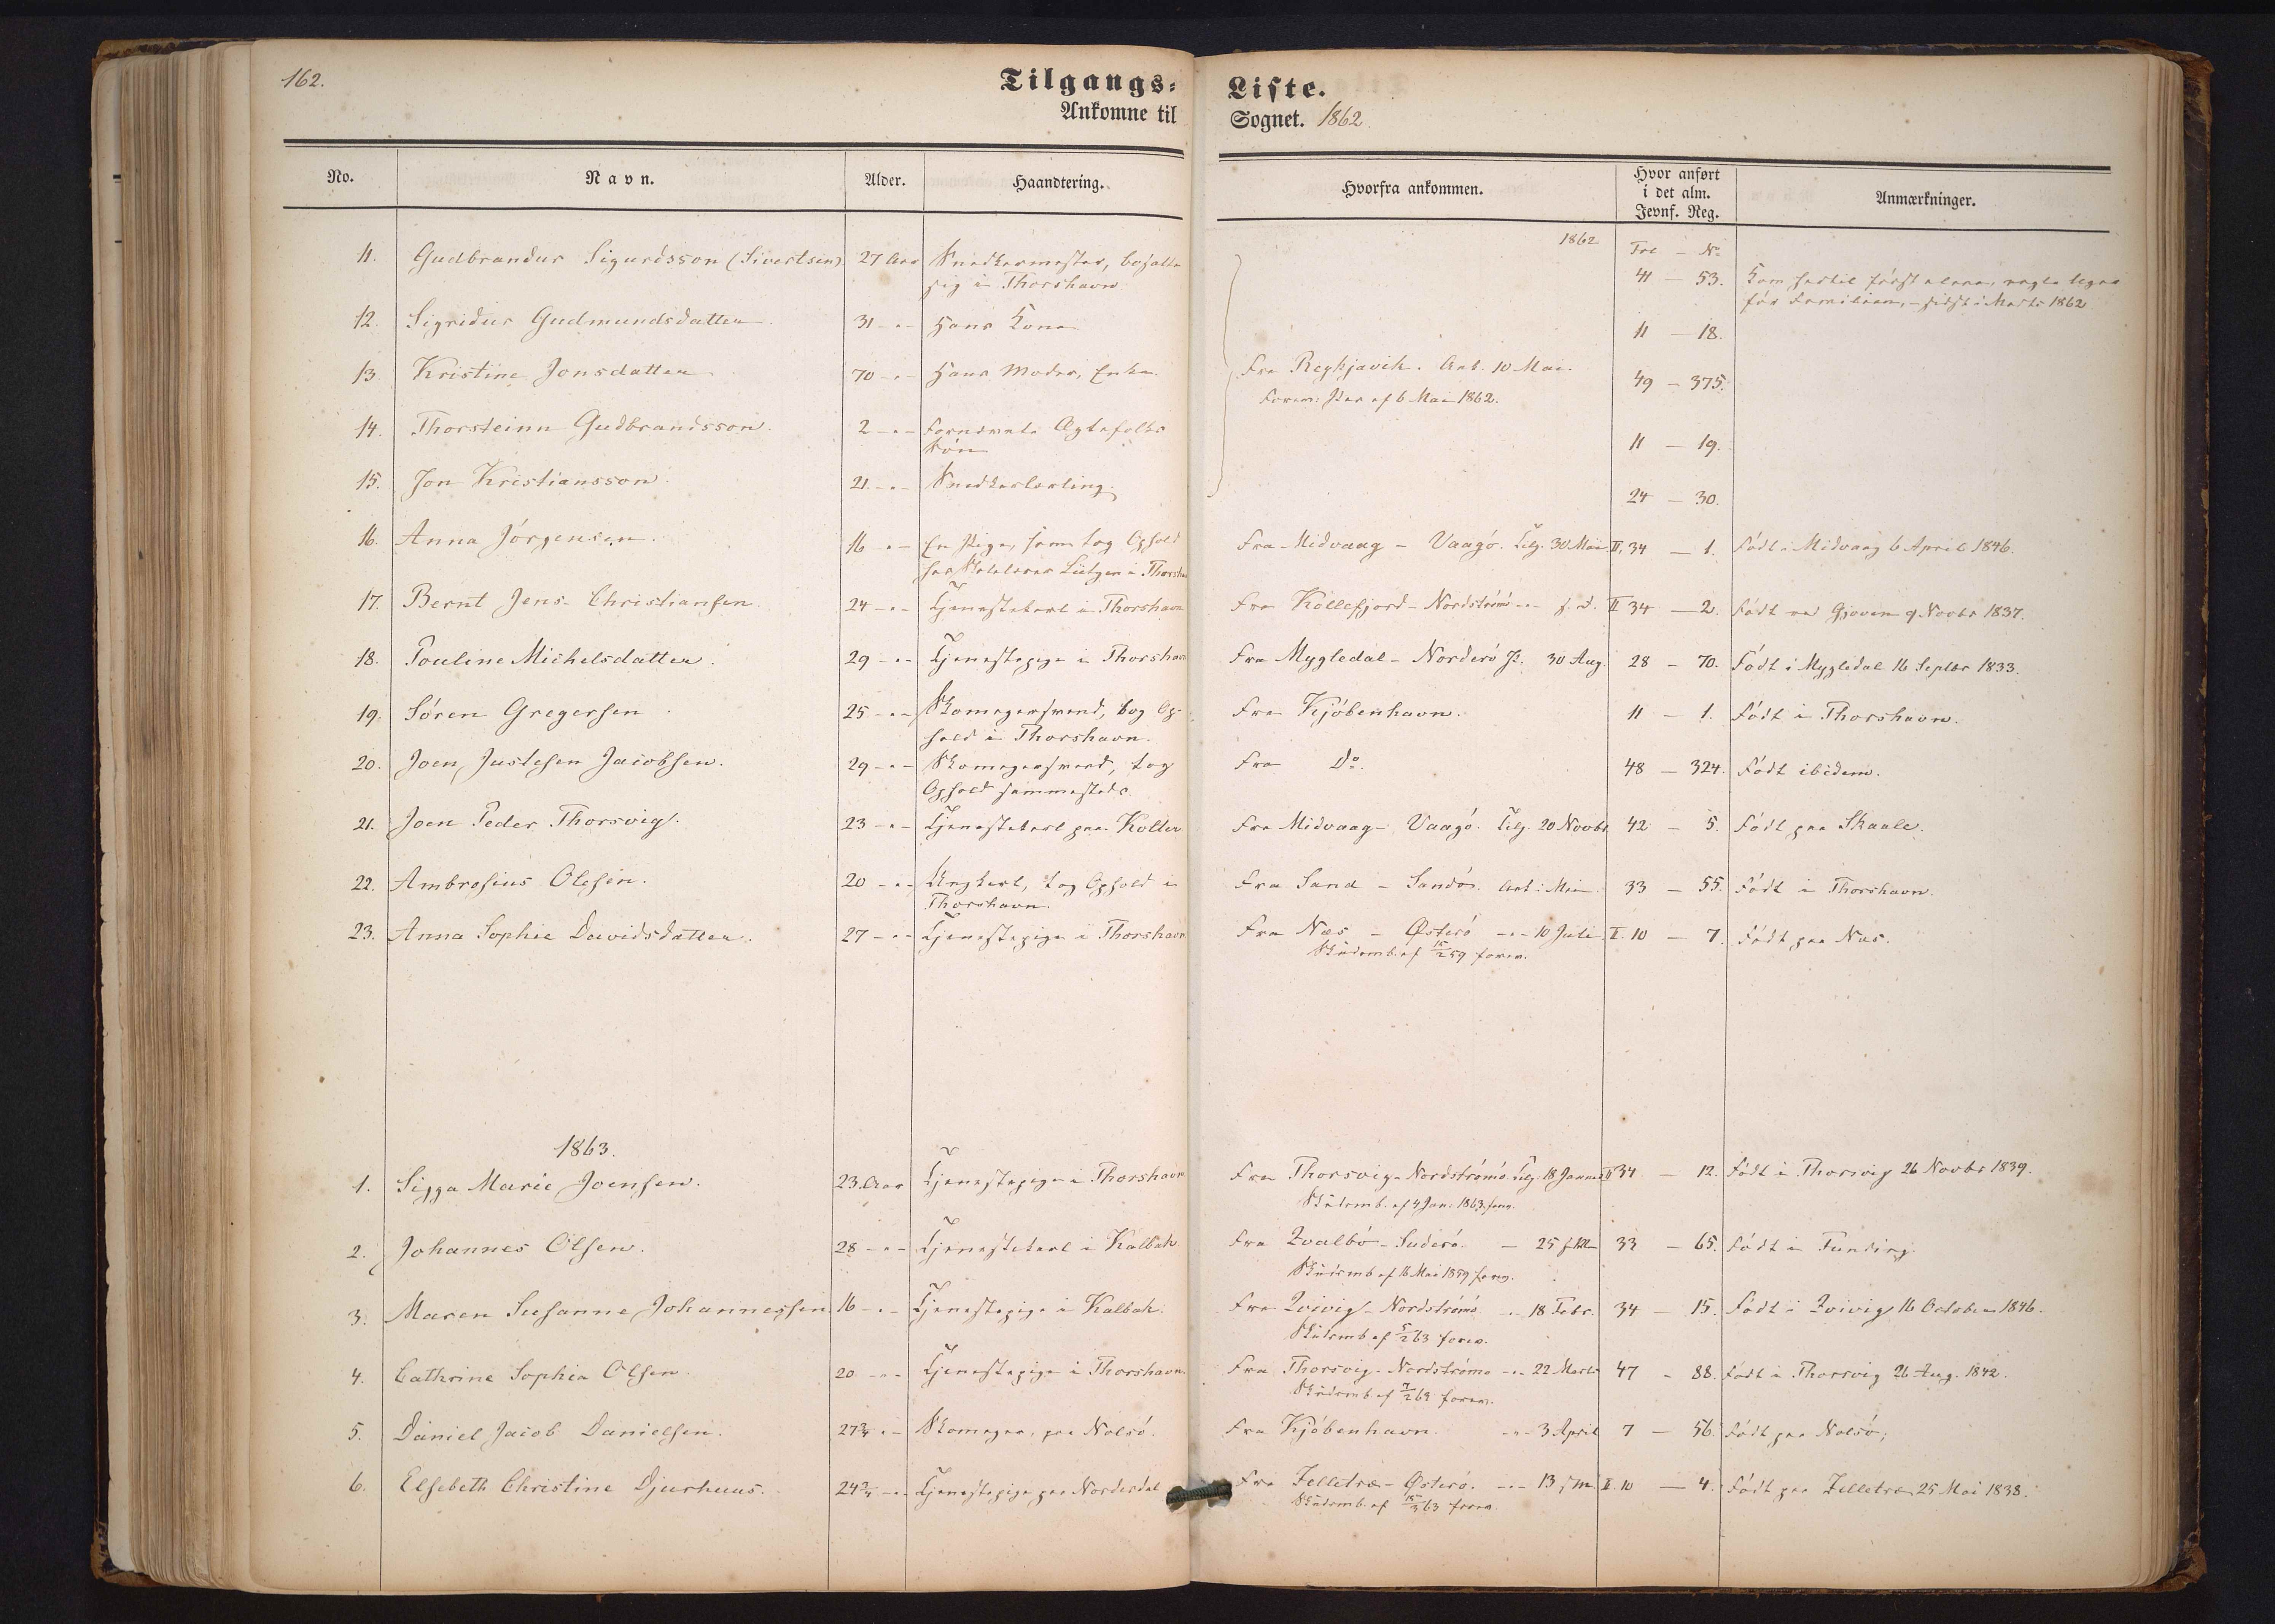 162.
Tilgangs-
Liste.
Ankomne til
Sognet. 1862.
No.
Navn.
Alder.
Haandtering.
Hvorfra ankommen.
Hvor anført
i det alm.
Jevnf. Reg.
Anmærkninger.
1862
Fol – No
11. Gudbrandur Sigurdsson (Sivertsen) 27 Aar Snedkermester, bosatte 41 – 53. Kom hertil først alene,
sig i Thorshavn for Familien, – sidst i Marts 1862
12. Sigridur Gudmundsdatter. 31 – " – Hans Kone 11 – 18.
13. Kristine Jonsdatter 70 – " – Hans Moder, Enke. Fra Reykjavik. Ank. 10 Mai. 49 – 375.
af 6 Mai 1862.
14. Thorsteinn Gudbrandsson. 2 – " – Fornævnte Ægtefolks 11 – 19.
Søn
15. Jon Kristiansson 21 – " – Snedkerlærling. 24 – 30.
16. Anna Jörgensen. 16 – " – En Pige, som tog Ophold Fra Midvaag – Vaagö. Tilg. 30 Mai II, 34 – 1. Födt i Midvaag 6 April 1846.
hos Lützen i Thorshavn
17. Bernt Jens Christiansen. 24 – " – Tjenestekarl i Thorshavn Fra Kollefjord – Nordströmö – " – s. D. II 34 – 2. Födt ved Gjoven 9 Novbr 1837.
18. Pouline Michelsdatter. 29 – " – Tjenestepige i Thorshavn Fra Mygledal – Norderö P. 30 Aug. 28 – 70. Födt i Mygledal 16 Septbr 1833.
19. Sören Gregersen 25 – " – Skomagersvend, tog Op- Fra Kjöbenhavn. 11 – 1. Födt i Thorshavn.
hold i Thorshavn.
20. Joen Justesen Jacobsen. 29 – " – Skomagersvend, tog Fra Do. 48 – 324. Födt ibidem.
Ophold sammesteds.
21. Joen Peder Thorsvig. 23 – " – Tjenestekarl paa Kolter Fra Midvaag – Vaagö. Tilg. 20 Novbr. 42 – 5. Födt paa Skaale.
22. Ambrosius Olesen. 20 – " – Ungkarl, tog Ophold i Fra Sand – Sandö. Ank. i Mai 33 – 55. Födt i Thorshavn.
Thorshavn.
23. Anna Sophie Davidsdatter. 27 – " – Tjenestepige i Thorshavn Fra Næs – Østerö – " – 10 Juli II. 10 – 7. Födt paa Næs.
Skudsmb. af 15/2 59 forev.
1863.
1. Sigga Marie Joensen. 23. Aar Tjenestepige i Thorshavn Fra Thorsvig – Nordströmö Tilg. 18 Januar II 34 – 12. Födt i Thorsvig 26 Novbr 1839.
Skudsmb. af 4 Jan. 1863 forev.
2. Johannes Olsen. 28 – " – Tjenestekarl i Kalbak Fra Qvalbö – Suderö. – 25 33 – 65. Födt i Funding.
Skudsmb af 16 Mai 1859 forev.
3. Maren Susanne Johannessen 16 – " – Tjenestepige i Kalbak. Fra Qvivig – Nordströmö – " – 18 Febr. 34 – 15. Födt i Qvivig 16 October 1846.
Skudsmb af 5/2 63 forev.
4. Cathrine Sophie Olsen. 20 – " – Tjenestepige i Thorshavn. Fra Thorsvig – Nordströmö – " – 22 Marts 47 – 88. Födt i Thorsvig 26 Aug. 1842.
Skudsmb af 7/2 63 forev.
5. Daniel Jacob Danielsen. 27 3/4 " – Skomager, paa Nolsö. Fra Kjöbenhavn. – " – 3 April 7 – 56. Födt paa Nolsö;
6. Elsebeth Christine Djurhuus. 24 3/4 – " – Tjenestepige paa Norderdal Fra Zelletræ – Østerö. – " – 13 s. M. II. 10 – 4. Födt paa Zelletræ 25 Mai 1838.
Skudsmb. af 15/3 63 forev.